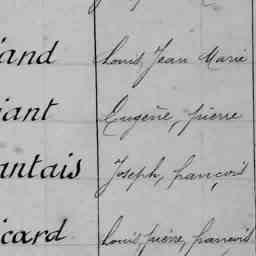 iand Louis Jean Marie
iant Eugène, pierre
antais Joseph, françois
icard Louis, pierre, françois